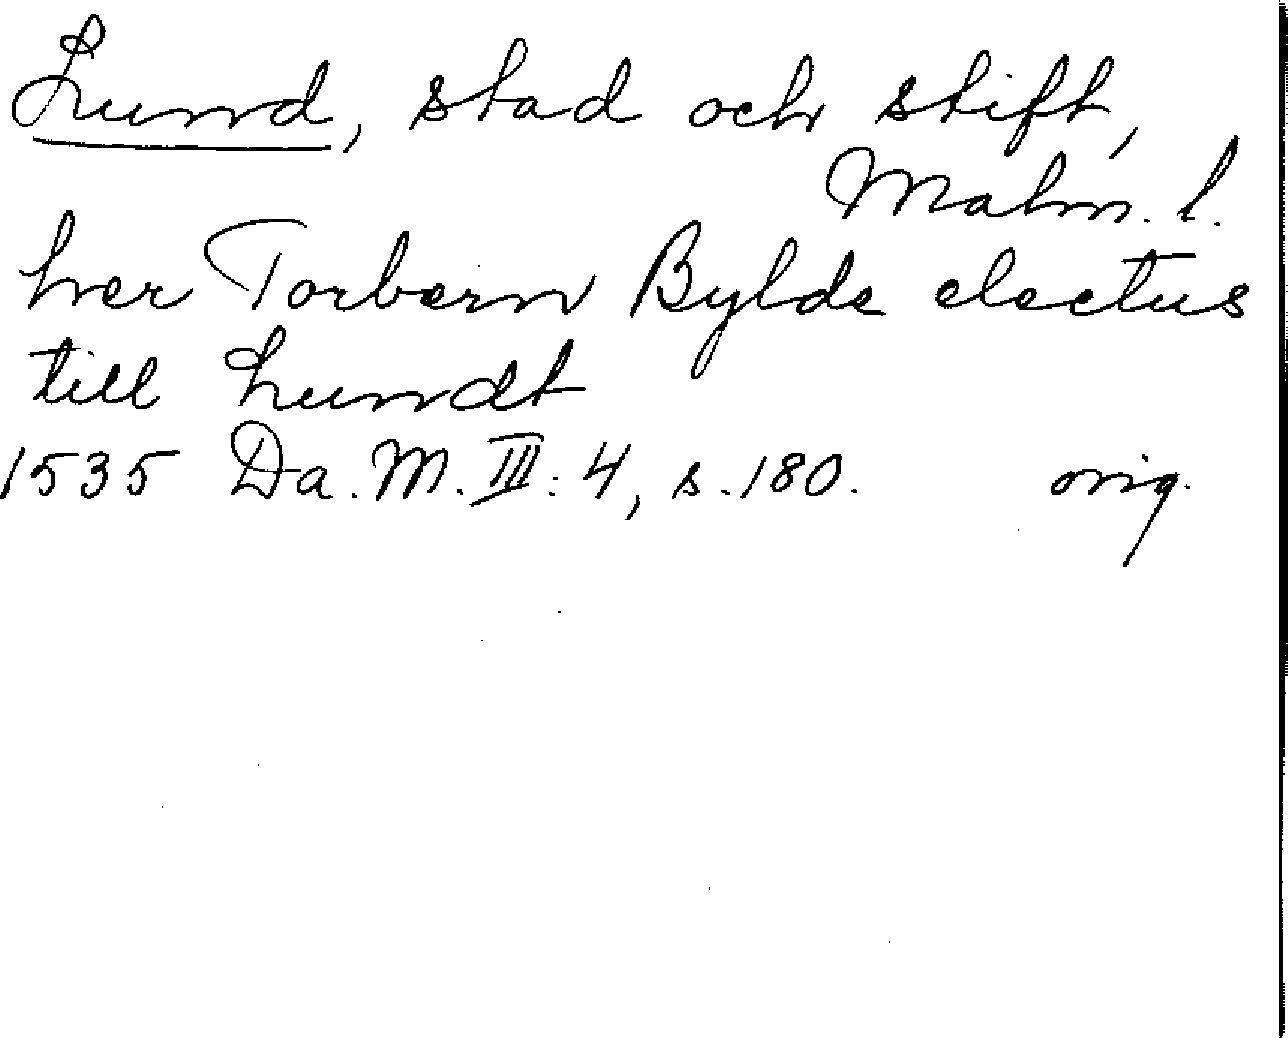 Lund, stad och stift,
Malm. l.
her Torbern Bylde electus
till Lundt
1535 Da. M. III: 4, s. 180. orig.